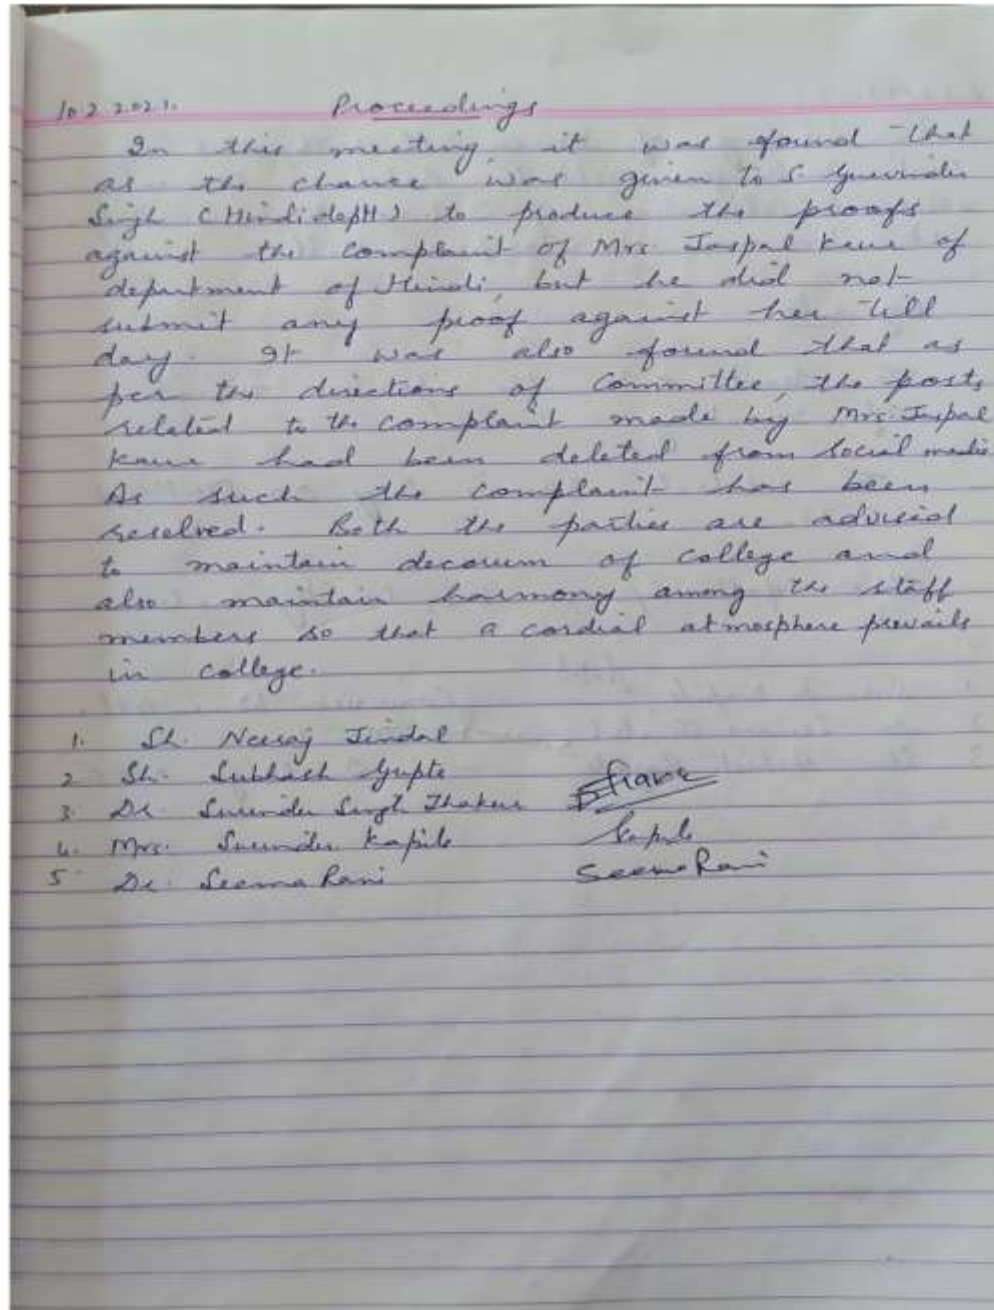 10.2.2021. Proceedings
In this meeting, it was found that
as the chance was given to S. Gurvinder
Singh (Hindi deptt) to produce the proofs
against the complaint of Mrs. Jaspal Kaur of
department of Hindi, but he did not
submit any proof against her till
day. It was also found that as
per the directions of Committee, the posts
related to the complaint made by Mrs. Jaspal
Kaur had been deleted from social media.
As such the complaint has been
resolved. Both the parties are advised
to maintain decorum of college and
also maintain harmony among the staff
members so that a cordial atmosphere prevails
in college.
1. Sh. Neeraj Jindal
2 Sh. Subhash Gupta
3. Dr. Surinder Singh Thakur
4. Mrs. Surinder Kapila Kapila
5. Dr. Seema Rani Seema Rani